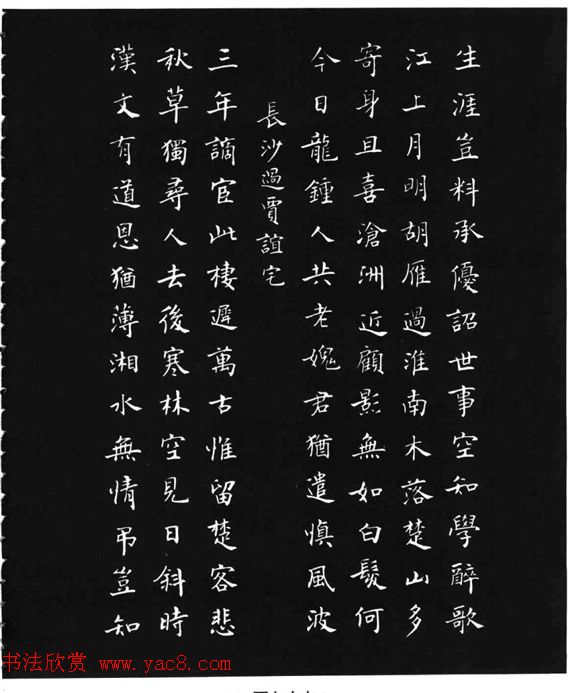 生涯豈料承優詔世事空知學醉歌
江上月明胡雁過淮南木落楚山多
寄身且喜滄洲近顧影無如白髮何
今日龍鍾人共老媿君猶遣慎風波
長沙過賈誼宅
三年謫宦此棲遲萬古惟留楚客悲
秋草獨尋人去後寒林空見日斜時
漢文有道恩猶薄湘水無情吊豈知
书法欣赏 www.yac8.com